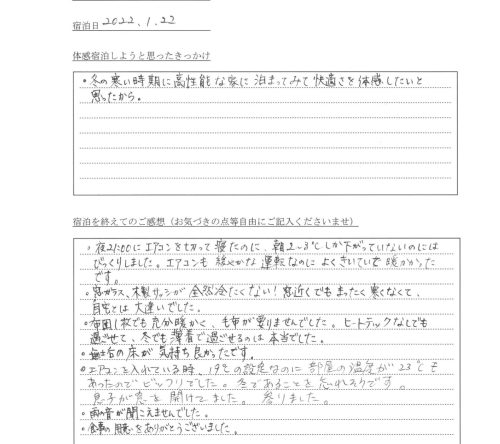 宿泊日 2022.1.22
体感宿泊しようと思ったきっかけ
・冬の寒い時期に高性能な家に泊まってみて快適さを体感したいと
思ったから。
宿泊を終えてのご感想（お気づきの点等自由にご記入くださいませ）
・夜21:00にエアコンを切って寝たのに、朝2~3℃しか下がっていないのには
びっくりしました。エアコンも緩やかな運転なのによくきいていて暖かかった
です。
・窓ガラス、木製サッシが全然冷たくない！窓近くでもまったく寒くなくて、
自宅とは大違いでした。
・布団1枚でも充分暖かく、毛布が要りませんでした。ヒートテックなしでも
過ごせて、冬でも薄着で過ごせるのは本当でした。
・無垢の床が気持ち良かったです。
・エアコンを入れている時、19℃の設定なのに部屋の温度が23℃も
あったのでビックリでした。冬であることを忘れそうです。
息子が窓を開けてました。
・雨の音が聞こえませんでした。
・食事の用意をありがとうございました。